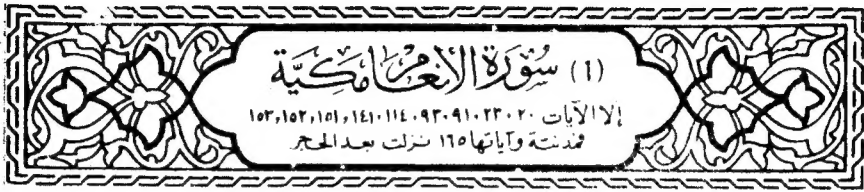 (٦) سورة الأنعام مكية
إلا الآيات ٢٠، ٢٣، ٩١، ٩٣، ١١٤، ١٤١، ١٥١، ١٥٢، ١٥٣
فمدنية وآياتها ١٦٥ نزلت بعد الحجر